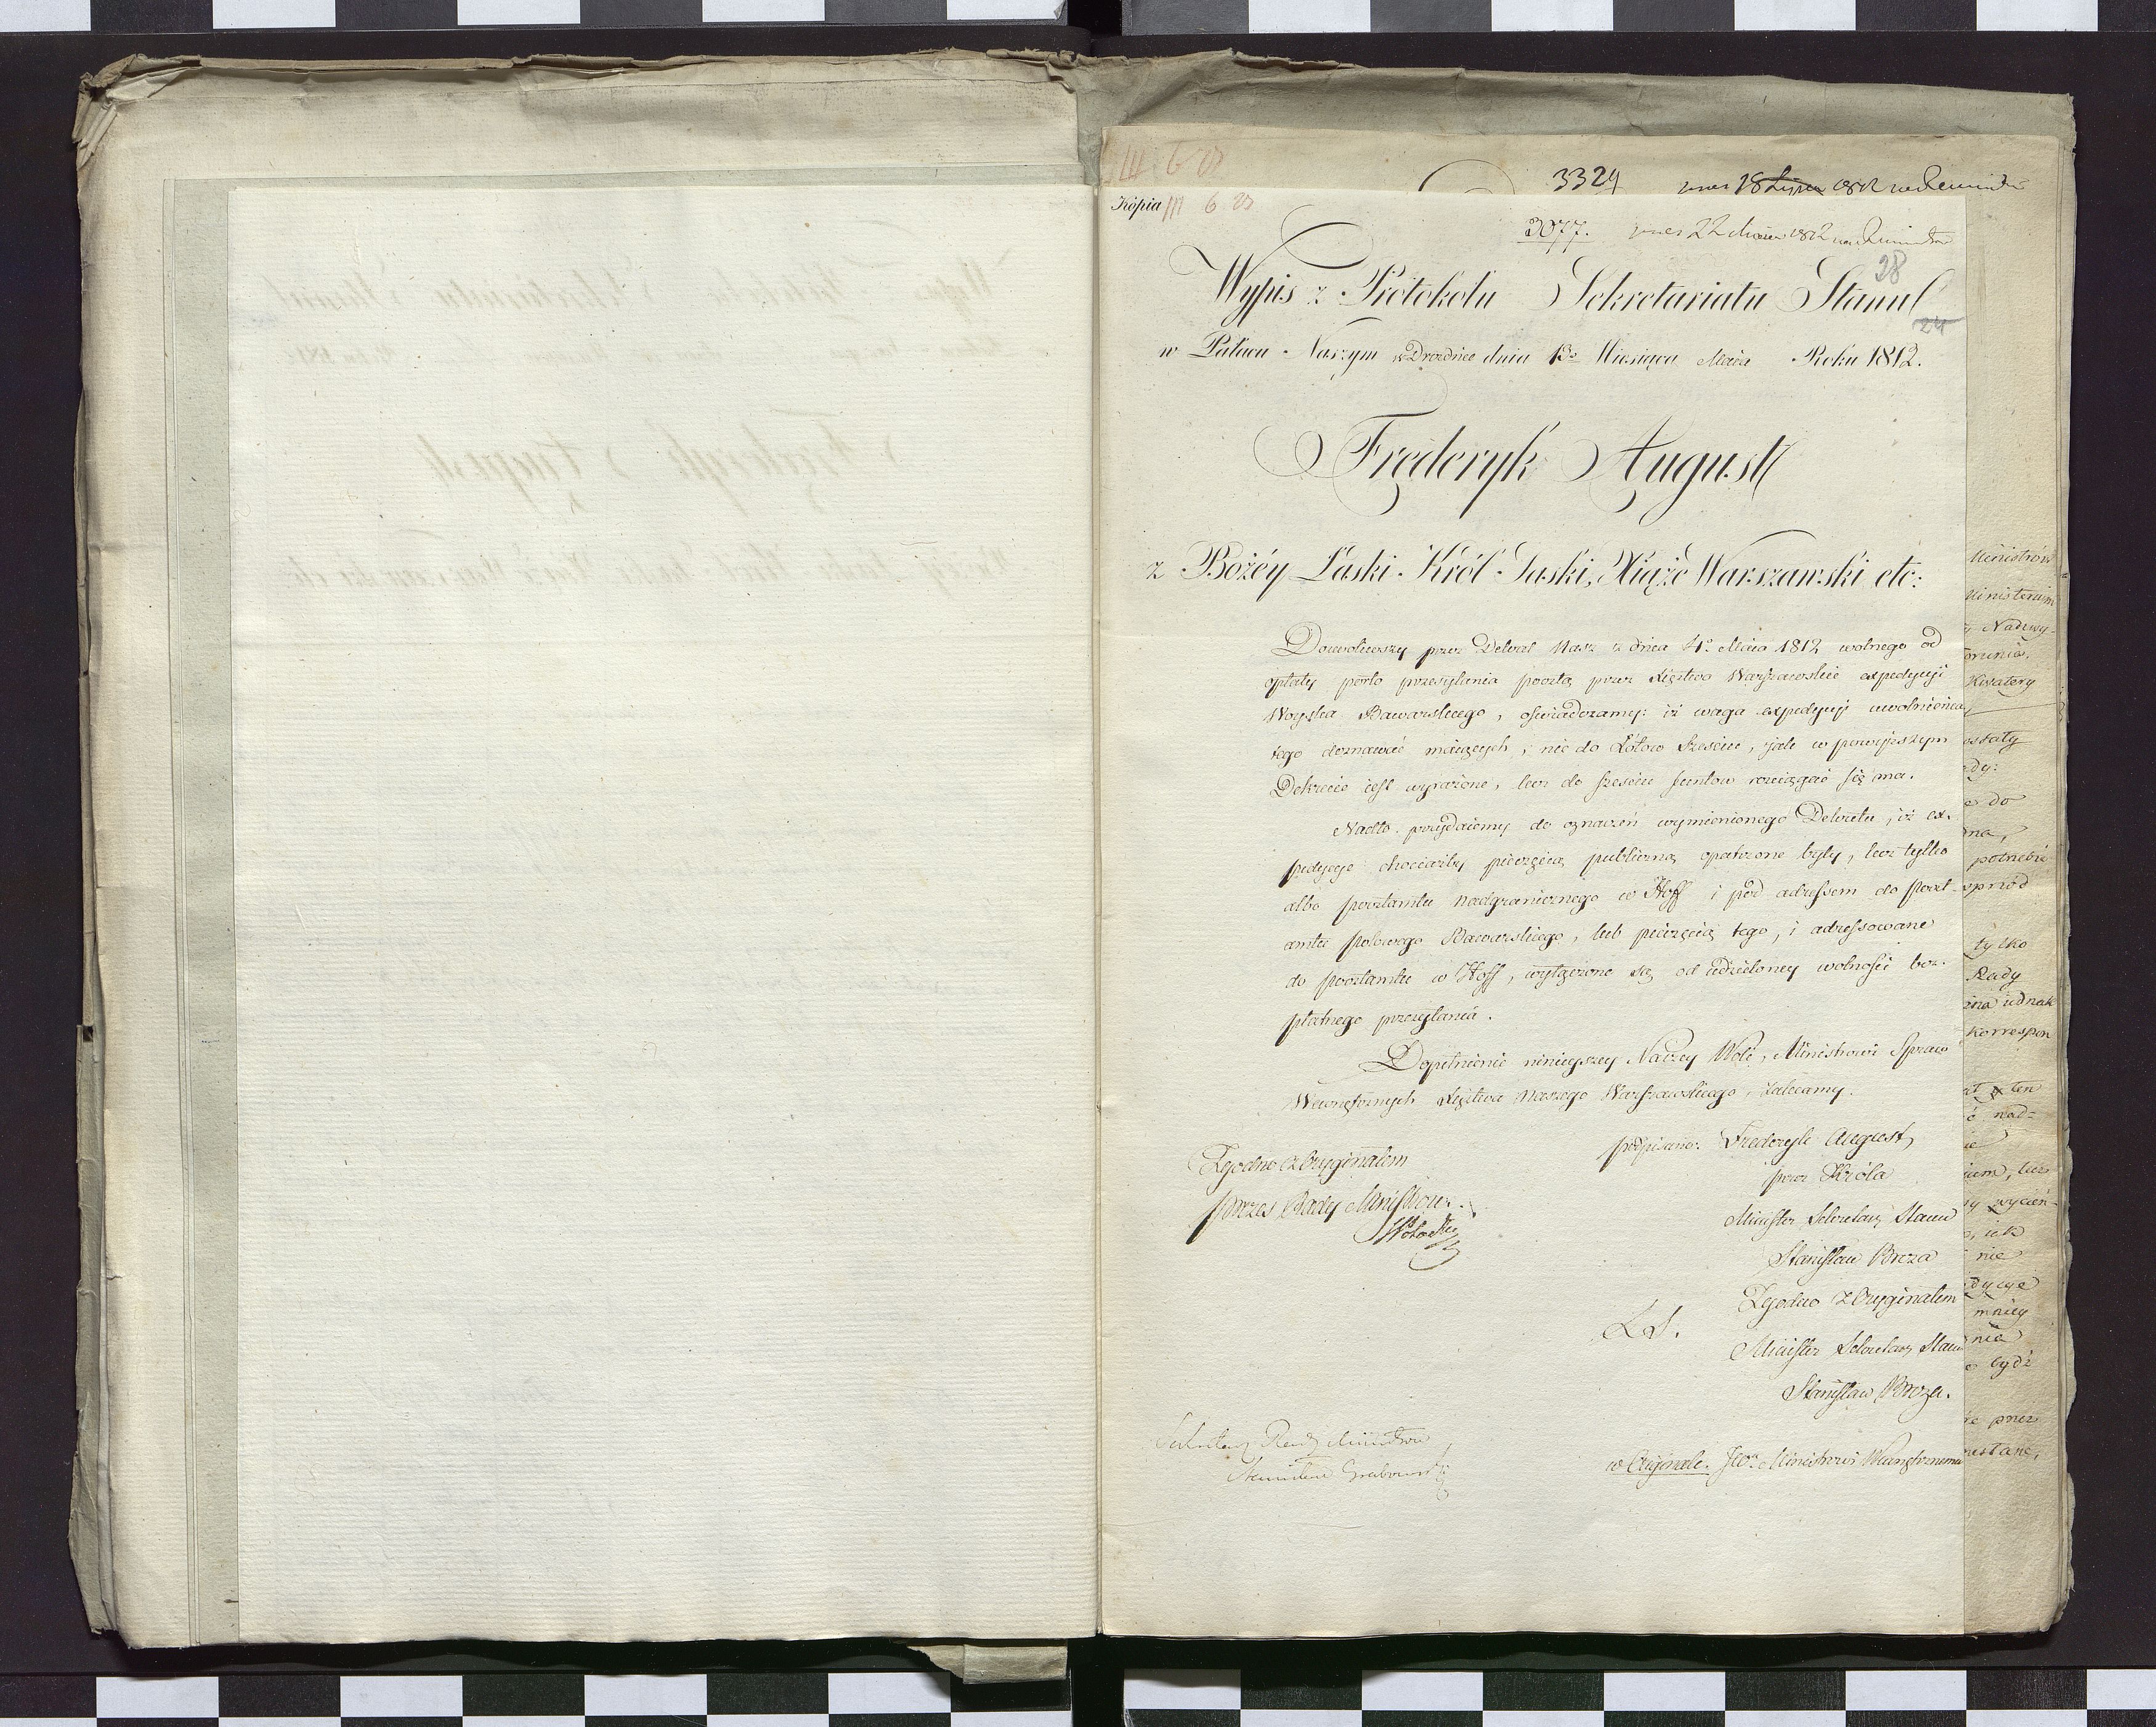 III 6 27
3324
18 Lipca 1812
Kopia III 6 27
3077. 22 1812
28
Wypis z Protokołu Sekretariatu Stanu
24
w Pałacu Naszym w Dreźnie dnia 13º Miesiąca Maia Roku 1812.
Fryderyk August
z Bożéy Łaski Król Saski, Xiąże Warszawski etc:
Dozwoliwszy przez Dekret Nasz z dnia 4º Maia 1812 wolnego od
opłaty porto przesyłania pocztą przez Xięztwo Warszawskie expedycyi
Woyska Bawarskiego, oświadczamy: iż waga expedycyi uwolnienia
tego doznawać maiących, nie do Łótow sześciu, jak w powyższym
Dekrecie iest wyrażone, lecz do sześciu funtow rozciągać się ma.
Nadto przydaiemy do oznaczeń wymienionego Dekretu, iż ex-
pedycye chociażby pieczęcią publiczną opatrzone były, lecz tylko
albo pocztamtu nadgranicznego w Hoff i pod adressem do poczt-
amtu polowego Bawarskiego, lub pieczęcią tego, i adressowane
do pocztamtu w Hoff, wyłączone są od udzieloney wolności bez-
płatnego przesyłania.
Dopełnienie ninieyszey Naszey Woli, Ministrowi Spraw
Wewnętrznych Xięztwa Naszego Warszawskiego, zalecamy.
podpisano: Fryderyk August,
przez Króla
Minister Sekretarz Stanu
Stanisław Breza
Zgodno z Oryginałem
Prezes Rady Ministrow.
SPotocki
Zgodno z Oryginałem
L.S.
Minister Sekretarz Stanu
Stanisław Breza.
Sekretarz Rady Ministrow
Stanisław Grabowski
w Oryginale. JW. Ministrowi Wewnętrznemu
Ministrów
Ministerium
Nadzwy-
Kwatery
do
potrzebie
tylko
Rady
iednak
korrespon
ten
nad-
nie
mniey
bydź
przez